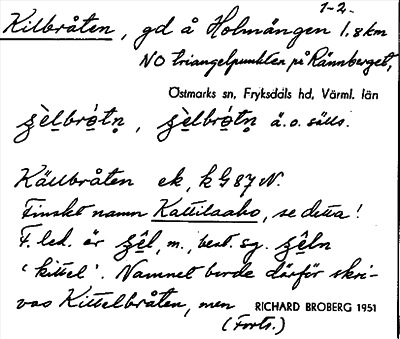 1-2.
Kilbråten, gd å Holmängen 1,8 km
NO triangelpunkten på Rännberget,
Östmarks sn, Fryksdals hd, Värml. län
ʂèlbrǻtn̥, ʂèlbrǻtn̥ ä.o. sålls.
Källbråten ek, k G 87 N.
Finskt namn Kattilaaho, se detta!
F. led. är ʂêl, m., best. sg. ʂêln
'kittel'. Namnet borde därför skri-
vas Kittelbråten, men RICHARD BROBERG 1951
(Forts.)